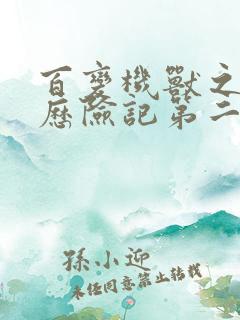 百變機獸之
歷險記第二
孫小迎
未经同意禁止转载